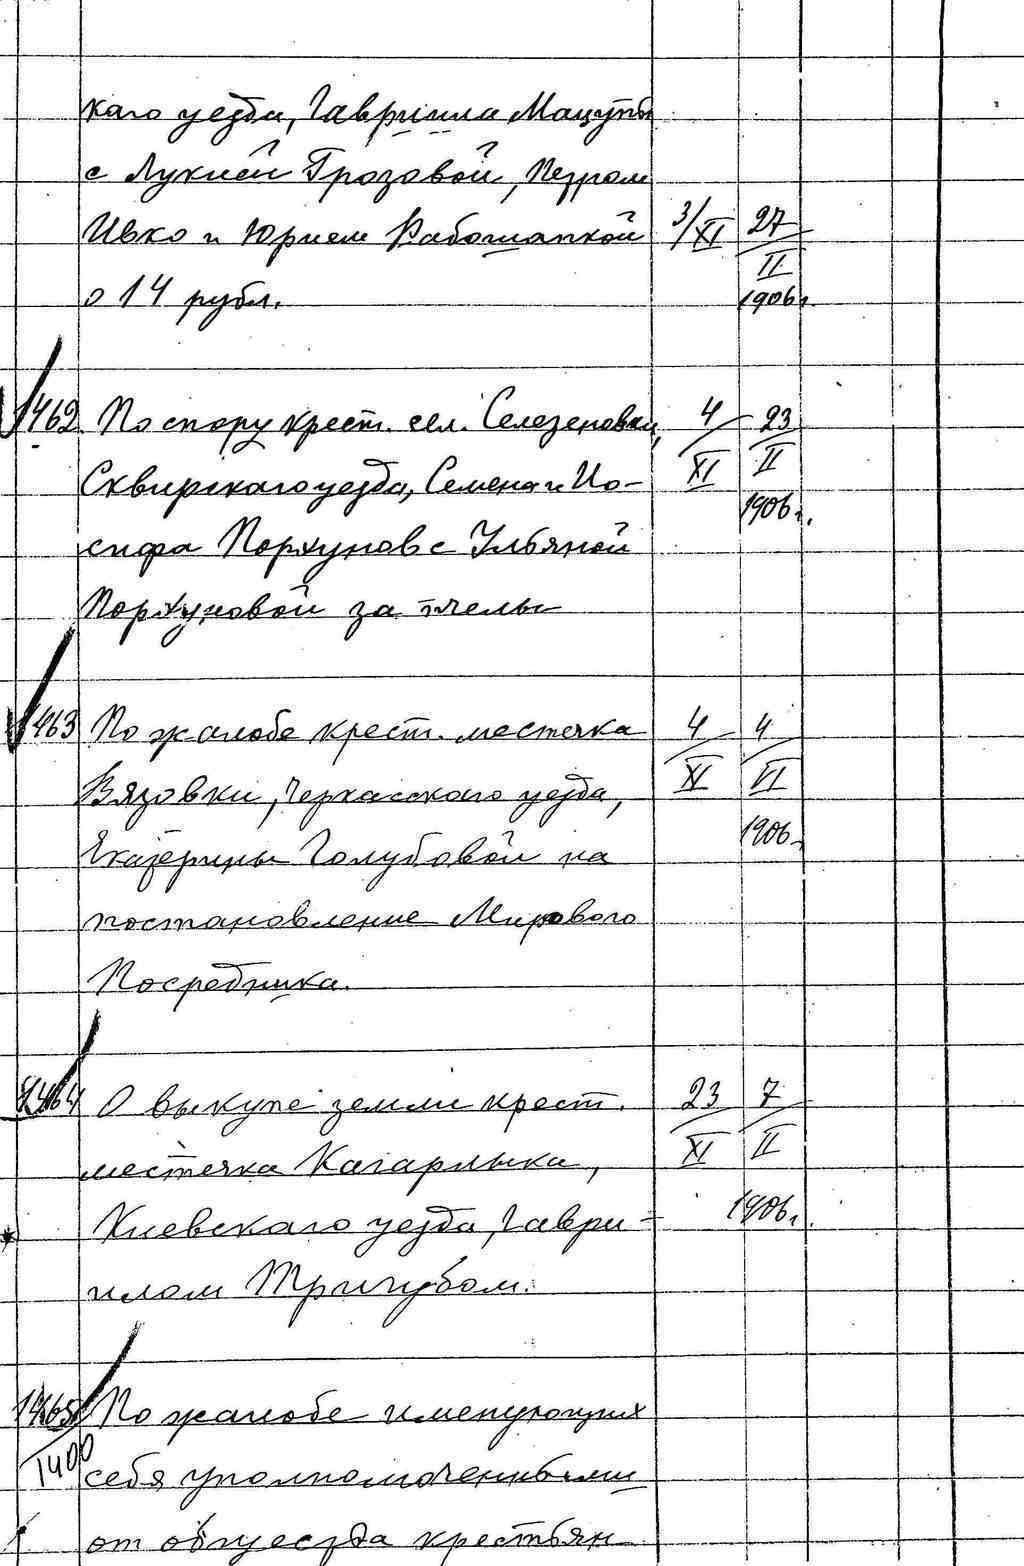 каго уезда, Гавриила Мацупы
с Лукией Грозовой, Петром
Ивко и Юрием Работапкой 3/XI 27/II
о 14 рубл. 1906 г.
1462 По спору крест. сел. Селезеновки, 4/XI 23/II
Сквирскаго уезда, Семена и Ио- 1906 г.
сифа Порхунов с Ульяной
Порхуновой за пчелы
1463 По жалобе крест. местечка 4/XI 4/VI
Вязовки, Черкасского уезда,
Екатерины Голубовой на 1906 г.
постановление Мирового
Посредника.
1464 О выкупе земли крест. 23/XI 7/II
местечка Кагарлыка,
Киевскаго уезда, Гаври- 1906 г.
илом Тригубом.
1465 По жалобе именующих
1400 себя уполномоченными
от общества крестьян